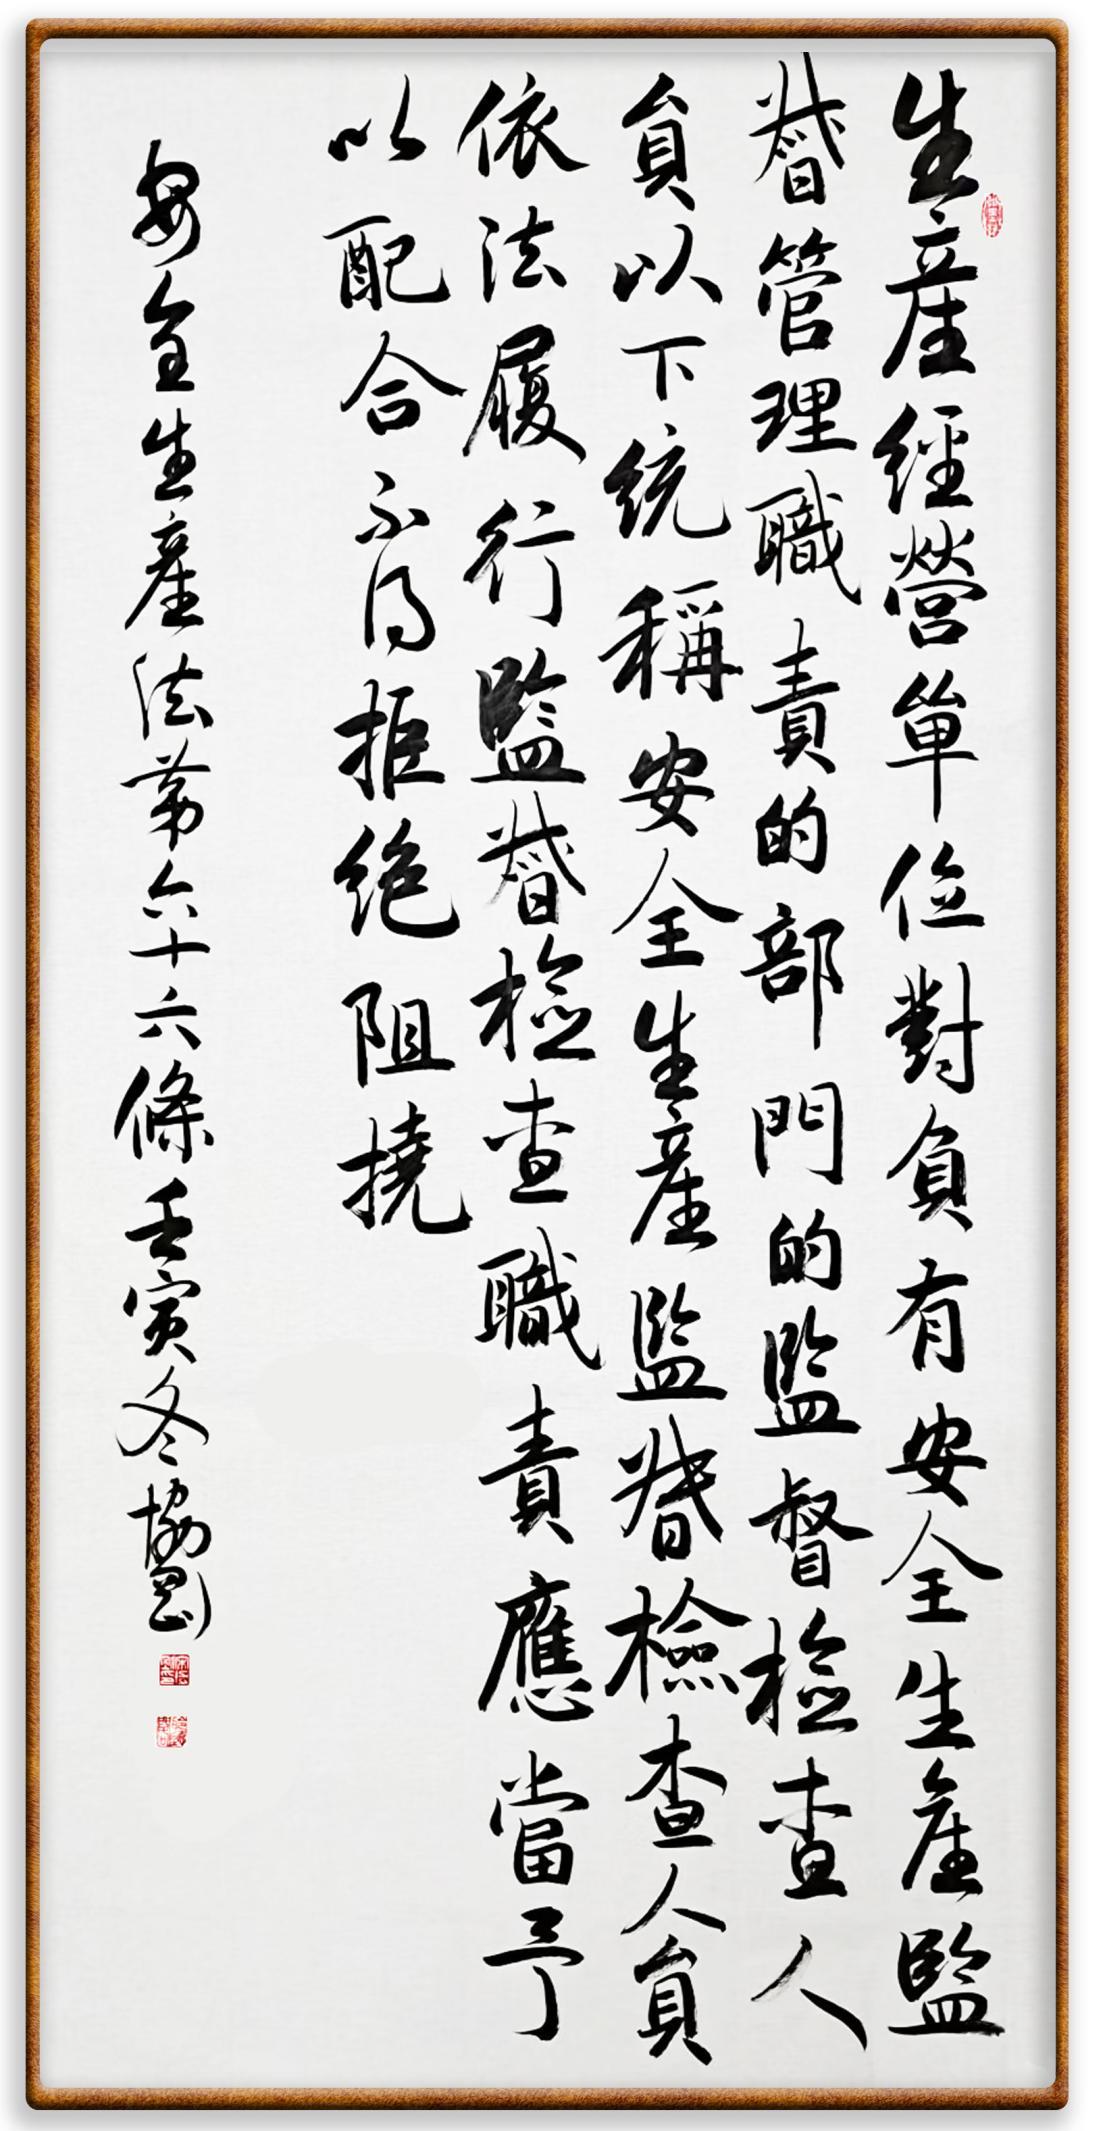 生產經營單位對負有安全生產監
督管理職責的部門的監督檢查人
員以下統稱安全生產監督檢查人員
依法履行監督檢查職責應當予
以配合不得拒絶阻撓
安全生產法第六十六條壬寅冬協剛